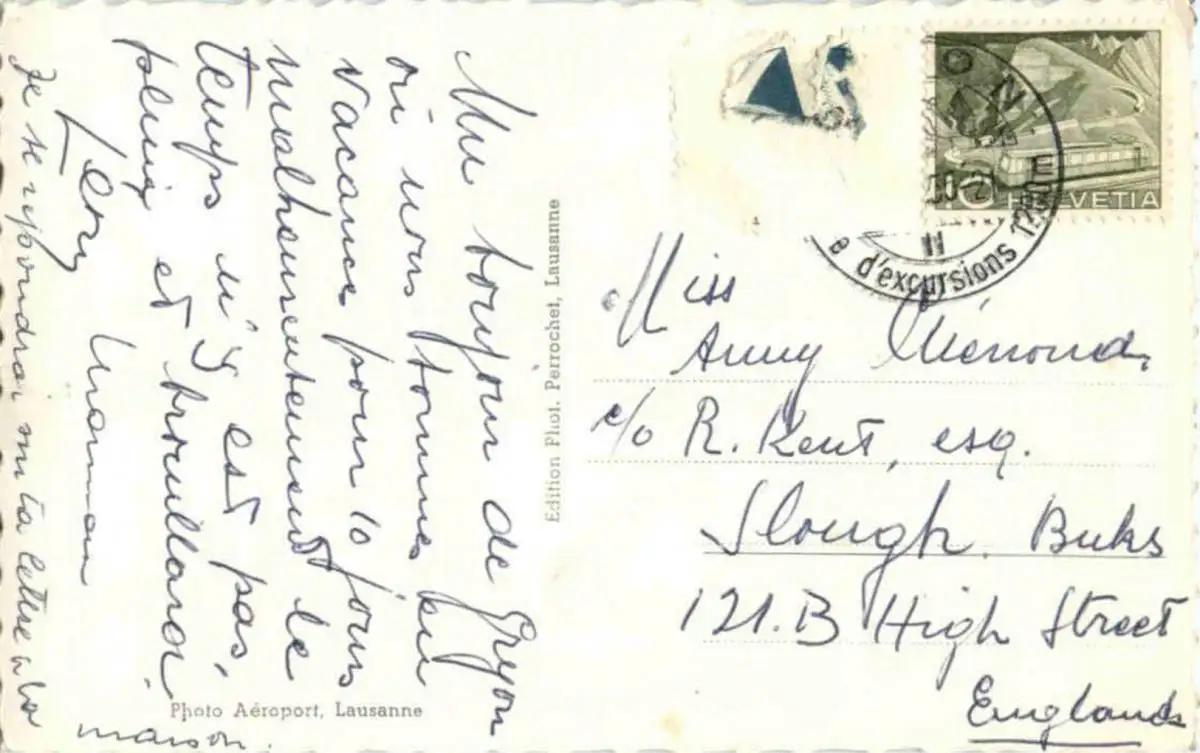 Un bonjour de Gryon
où nous sommes en
vacances pour 10 jours
malheureusement le
temps n'y est pas,
pluie et brouillard.
Maman
Je te répondrai sur ta lettre à la
maison.
Edition Phot. Perrochet, Lausanne
Photo Aéroport, Lausanne
HELVETIA
e d'excursions
Miss
Anny
c/o R. Kent, esq.
Slough. Buks
121.B High Street
England